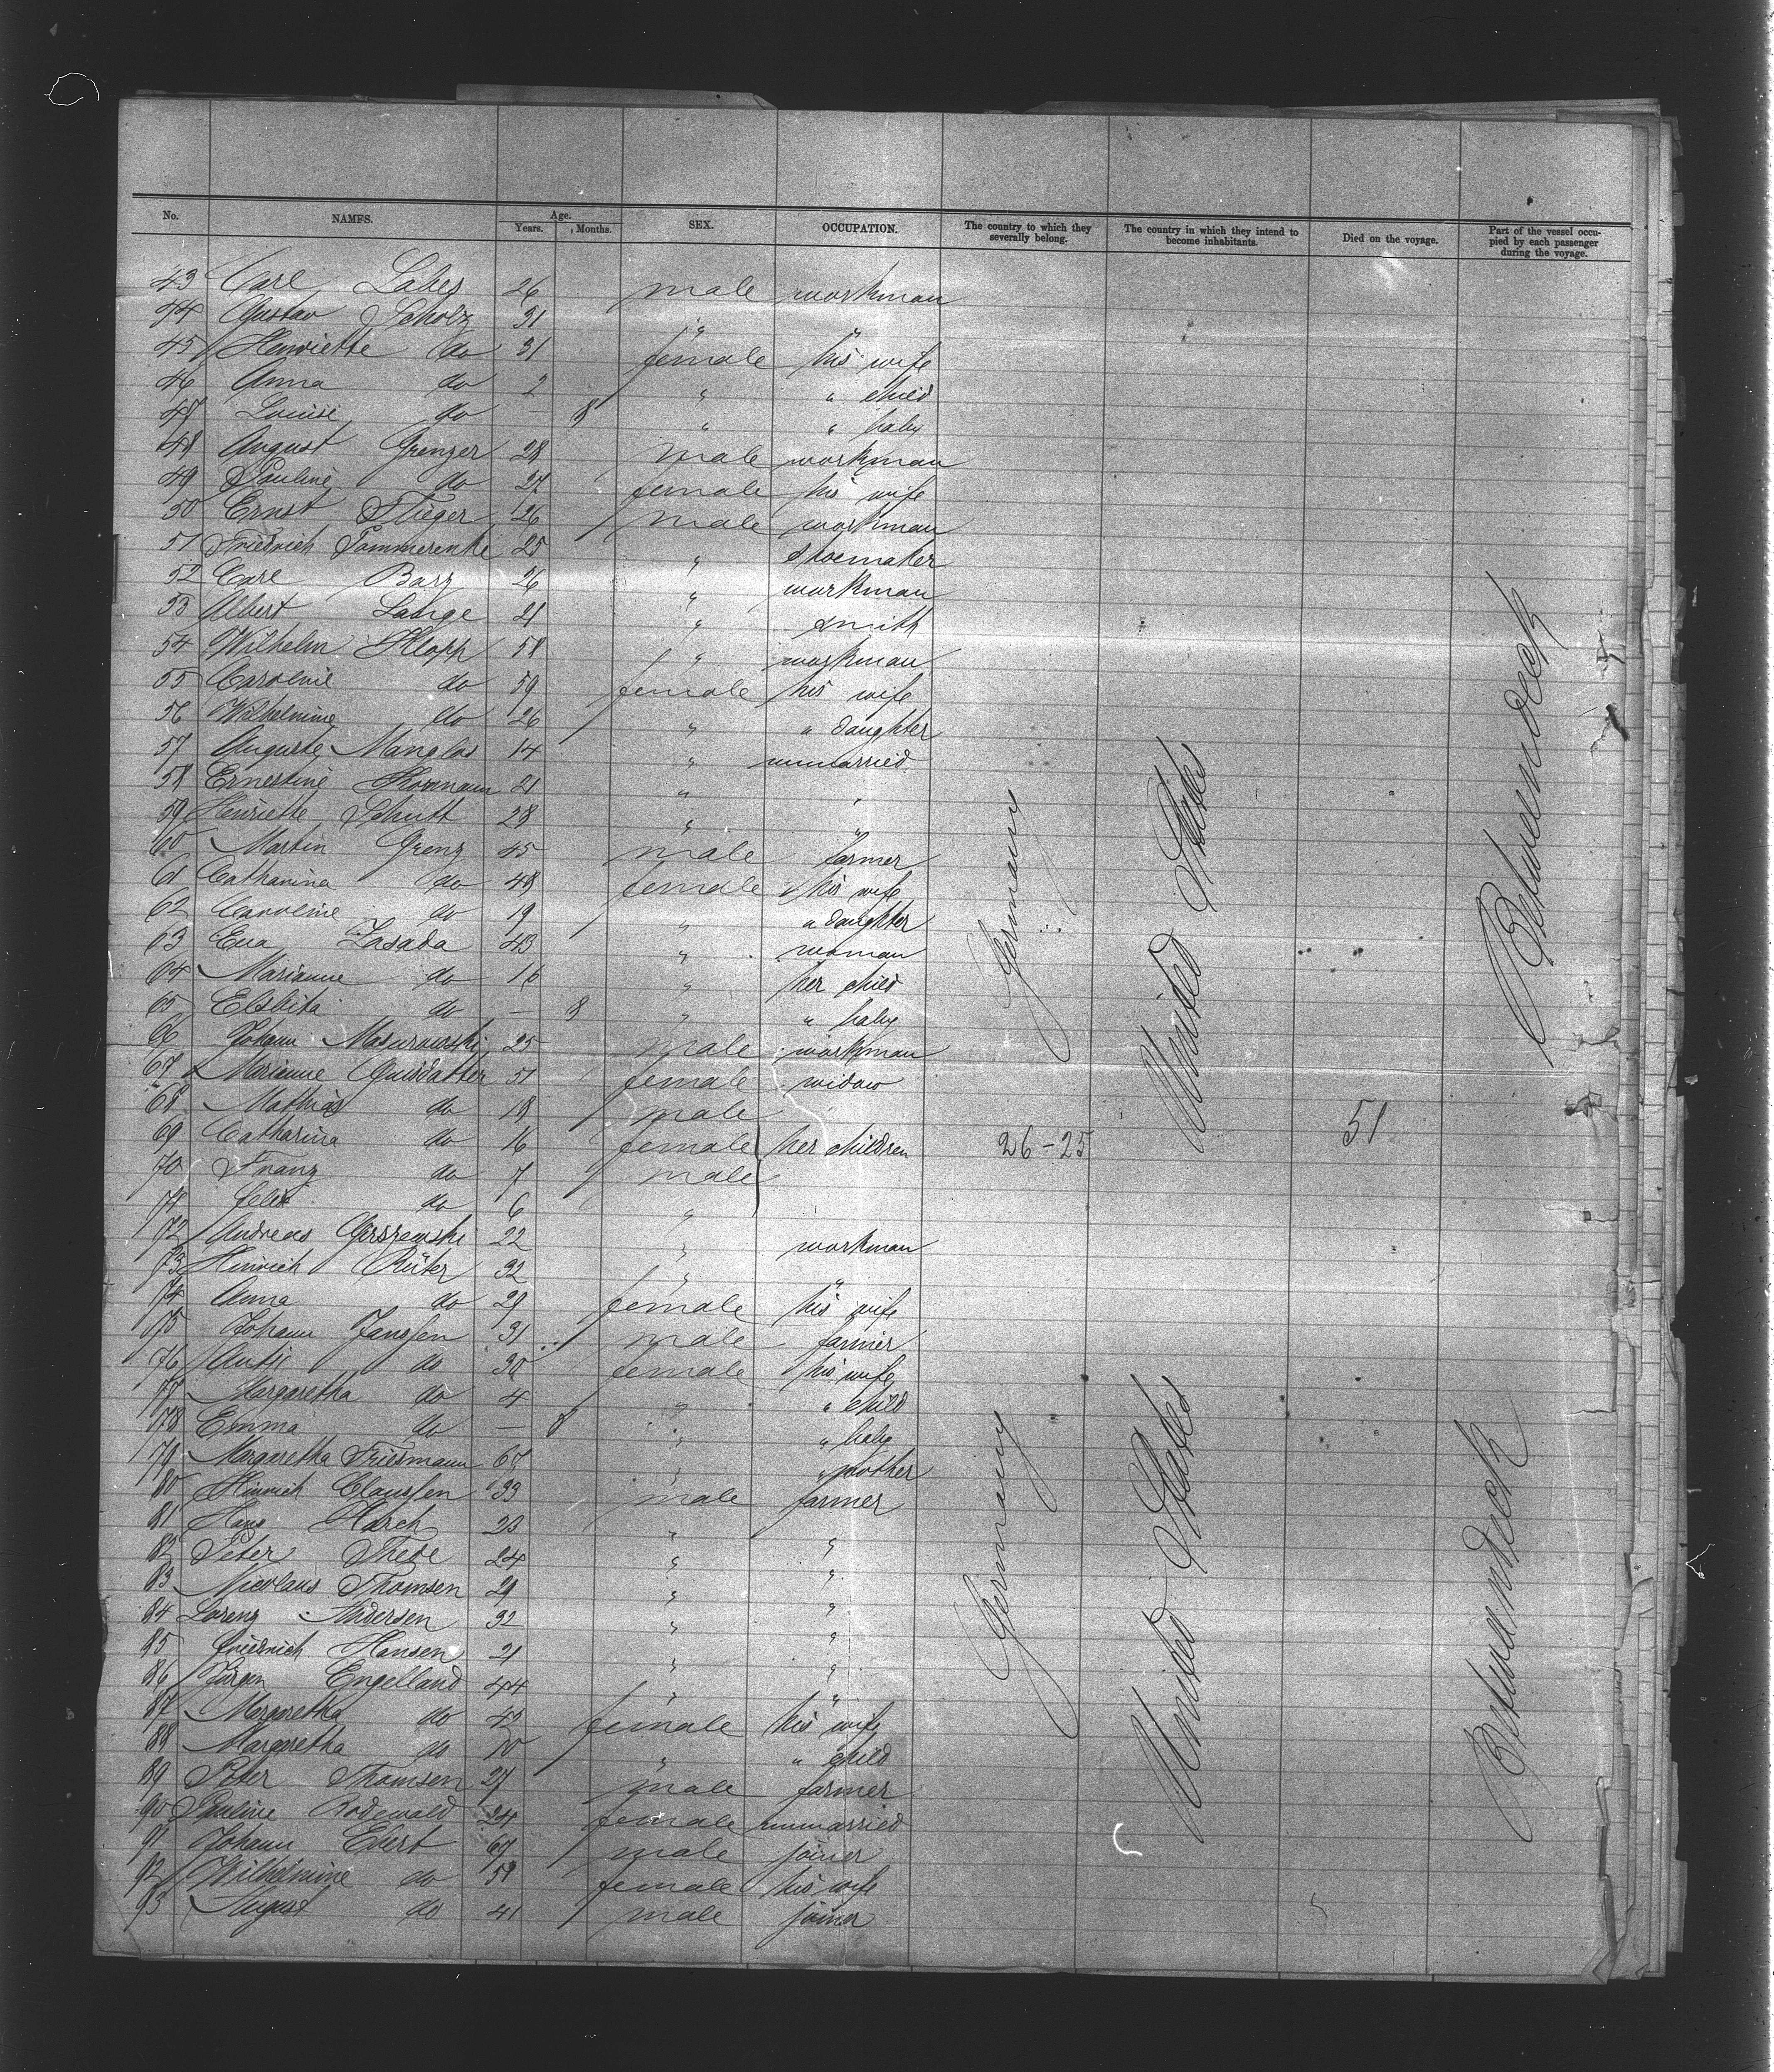 No. NAMES. Age. Years. Months. SEX. OCCUPATION. The country to which they severally belong. The country in which they intend to become inhabitants. Died on the voyage. Part of the vessel occupied by each passenger during the voyage.
43 Carl 26 male workman
44 Gustav Scholz 31 " "
45 Henriette do 31 female his wife
46 Anna do 2 " " child
47 Louise do — 8 " " baby
48 August Grenzer 28 male workman
49 Pauline do 27 female his wife
50 Ernst Stieger 26 male workman
51 Friedrich Pommerenke 25 " shoemaker
52 Carl Barz 26 " workman
53 Albert Lange 21 " smith
54 Wilhelm Klopp 58 " workman
55 Caroline do 59 female his wife
56 Wilhelmine do 26 " " daughter
57 Auguste Manglas 14 " unmarried
58 Ernestine 21 " "
59 Henriette Schutt 28 " "
60 Martin Grenz 45 male farmer
61 Catharina do 48 female his wife
62 Caroline do 19 " " daughter
63 Eva Zasada 43 " woman
64 Marianne do 10 " her child
65 Elsbita do — 8 " " baby
66 Johann Masurowski 25 male workman
67 Marianne 51 female widow
68 Mathias do 18 male
69 Catharina do 16 female her children 26-25 51
70 Franz do 7 male
71 Felix do 6 "
72 Andreas Gerszewski 22 " workman
73 Hinrich Rüter 32 " "
74 Anna do 29 female his wife
75 Johann Janssen 31 male farmer
76 Antje do 30 female his wife
77 Margaretha do 4 " " child
78 Emma do — 8 " " baby
79 Margaretha Friesmann 67 " " mother
80 Hinrich Claussen 33 male farmer
81 Hans Harch 23 " "
82 Peter Thede 24 " "
83 Nicolaus Thomsen 21 " "
84 Lorenz Andersen 32 " "
85 Friedrich Hansen 21 " "
86 Jürgen Engelland 44 " "
87 Margaretha do 42 female his wife
88 Margaretha do 10 " " child
89 Peter Thomsen 27 male farmer
90 Pauline Rodewald 24 female unmarried
91 Johann Ebert 67 male joiner
92 Wilhelmine do 59 female his wife
93 August do 41 male joiner
Germany
United States
Betweendeck
Germany
United States
Betweendeck